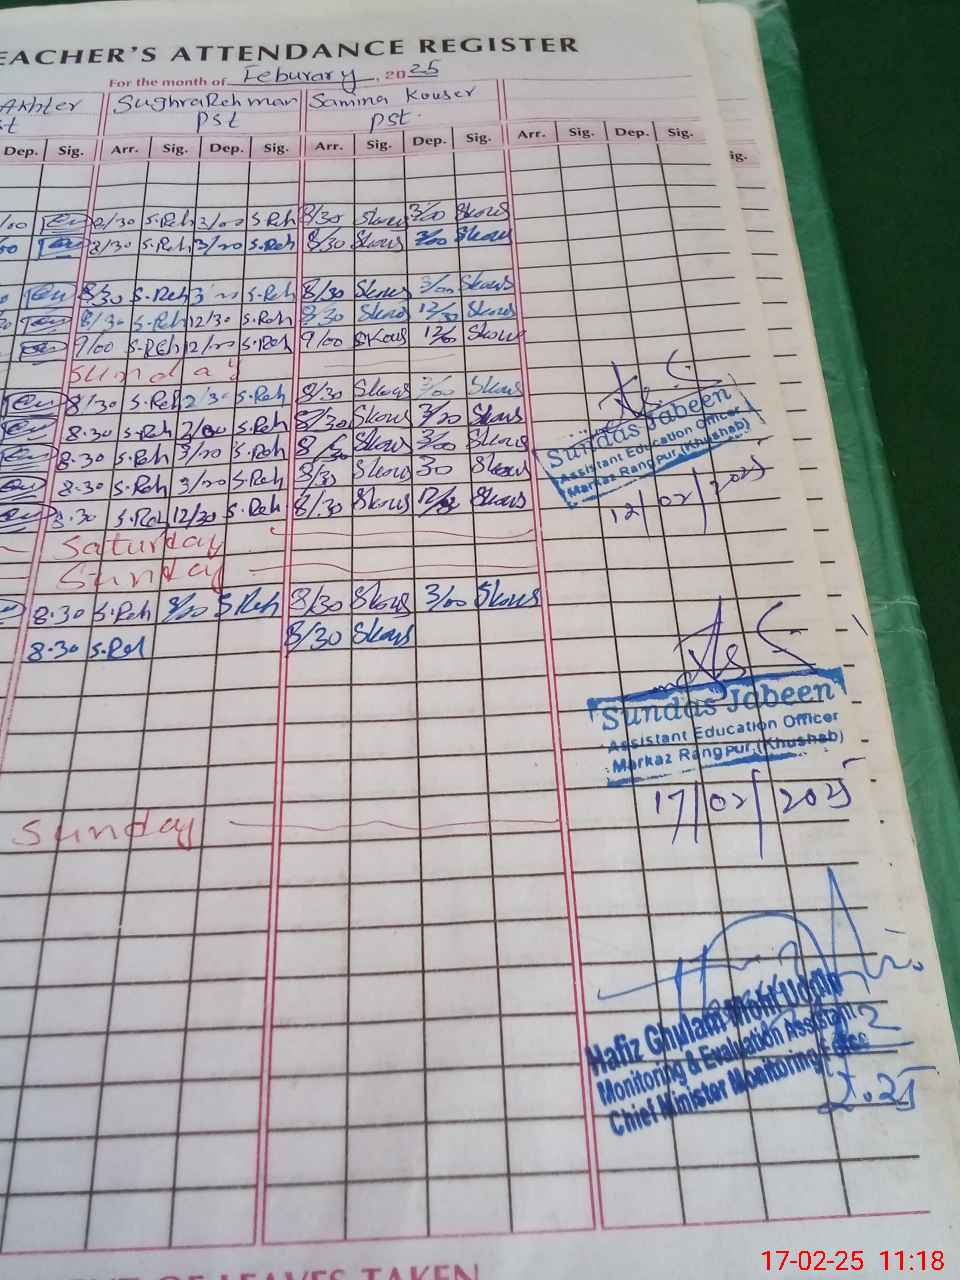 EACHER'S ATTENDANCE REGISTER
For the month of Feburary, 2025
Akhter SughraRehman Samina Kouser
st PSt PSt.
Dep. Sig. Arr. Sig. Dep. Sig. Arr. Sig. Dep. Sig. Arr. Sig. Dep. Sig.
ig.
/00 8/30 S.Reh 3/00 S.Reh 8/30 Skous 3/00 Skous
8/30 S.Reh 3/00 S.Reh 8/30 Skous 3/00 Skous
8/30 S.Reh 3/00 S.Reh 8/30 Skous 3/00 Skous
8/30 S.Reh 12/30 S.Reh 8/30 Skous 12/30 Skous
9/00 S.REh 12/00 S.REh 9/00 SKous Skous
Sunday
8/30 S.Reh S.Reh 8/30 Skous 3/00 Skous
8.30 S.Reh 3/00 S.Reh 8/30 Skous 3/00 Skous
8.30 S.Reh 3/00 S.Reh Skous 3/00 Skous
8.30 S.Reh 3/00 S.Reh 8/30 Skous Skous
8.30 S.Reh 12/30 S.Reh 8/30 Skous 12/30 Skous
Saturday
Sunday
8.30 S.Reh S.Reh 8/30 Skous 3/00 Skous
8.30 S.Reh 8/30 Skous
Sunday
Sundas Jabeen
Assistant Education Officer
Markaz Rangpur,(Khushab)
12/02/2025
Sundas Jabeen
Assistant Education Officer
Markaz Rangpur,(Khushab)
17/02/2025
Hafiz Ghulam Mohi Uddin
Monitoring & Evaluation Assistant
Chief Minister Monitoring Force
OF LEAVES TAKEN
17-02-25 11:18